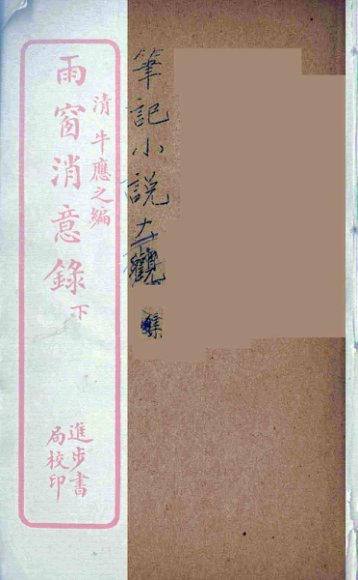 筆記小說大觀
雨窗消意錄下
清 牛應之編
進步書
局校印